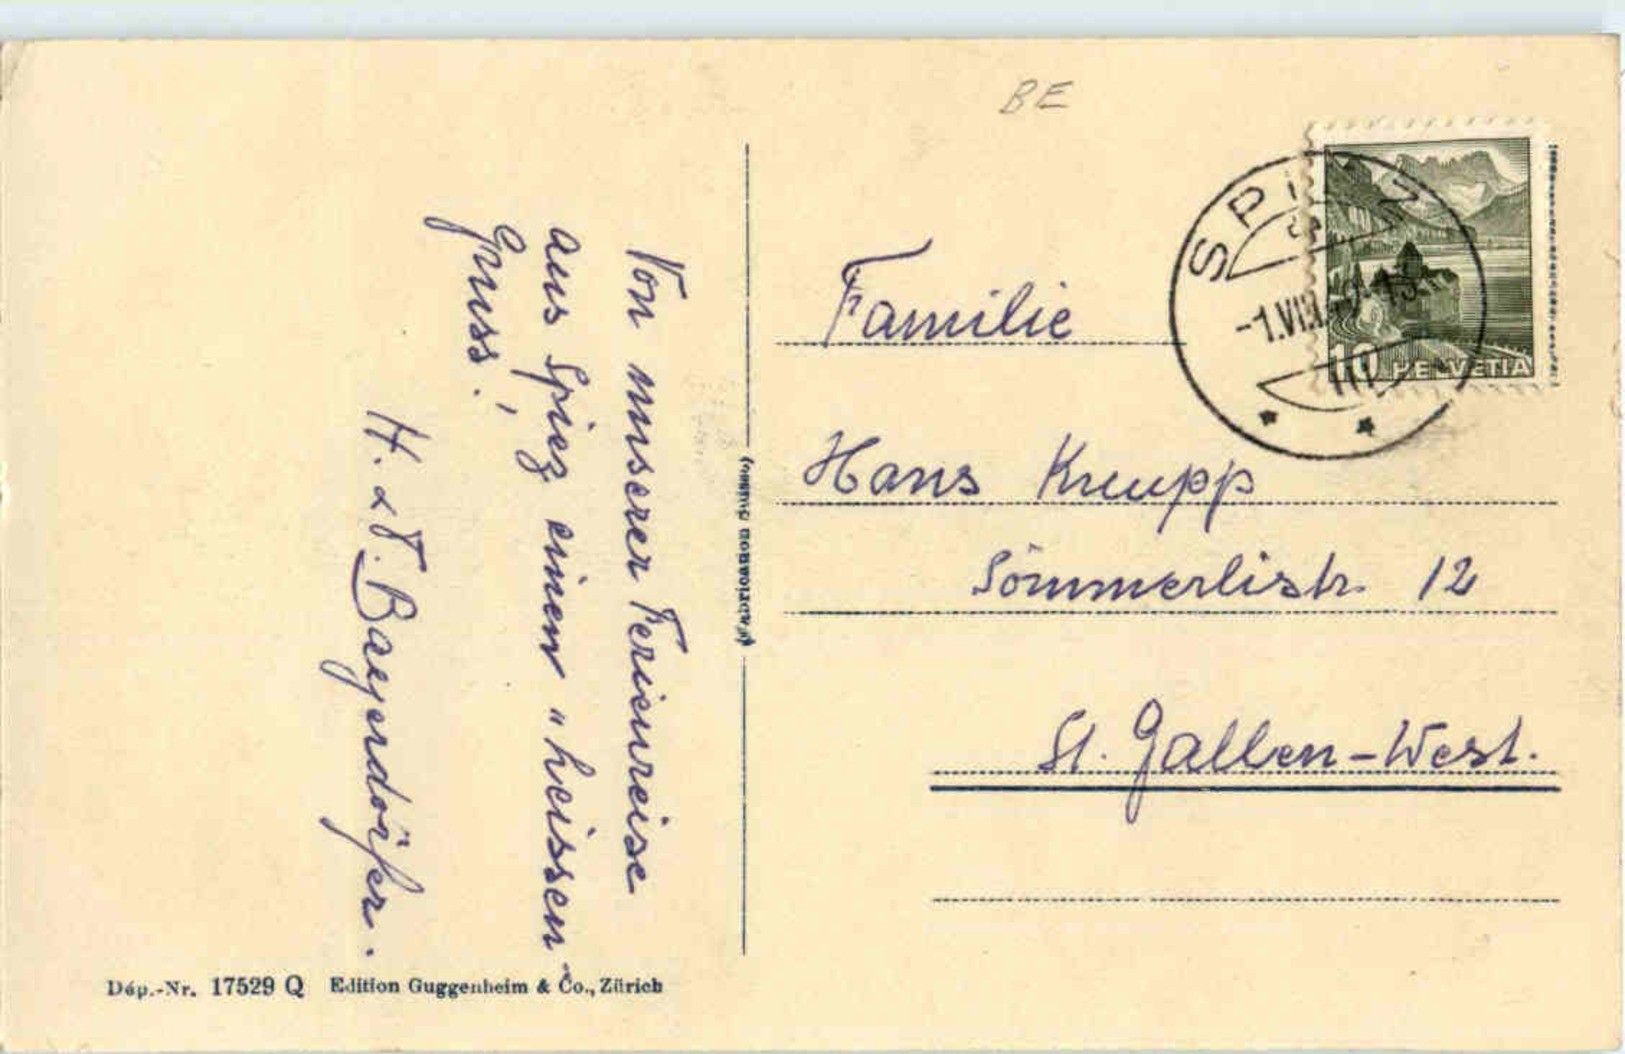 BE
SPIEZ
-1.VIII.
10 HELVETIA
Von unserer Ferienreise
aus Spiez einen "heissen"
Gruss!
H. & T. Bayersdörfer.
Familie
Hans Krupp
Sömmerlistr. 12
St. Gallen-West.
(Fabrication Suisse)
Dép.-Nr. 17529 Q Edition Guggenheim & Co., Zürich